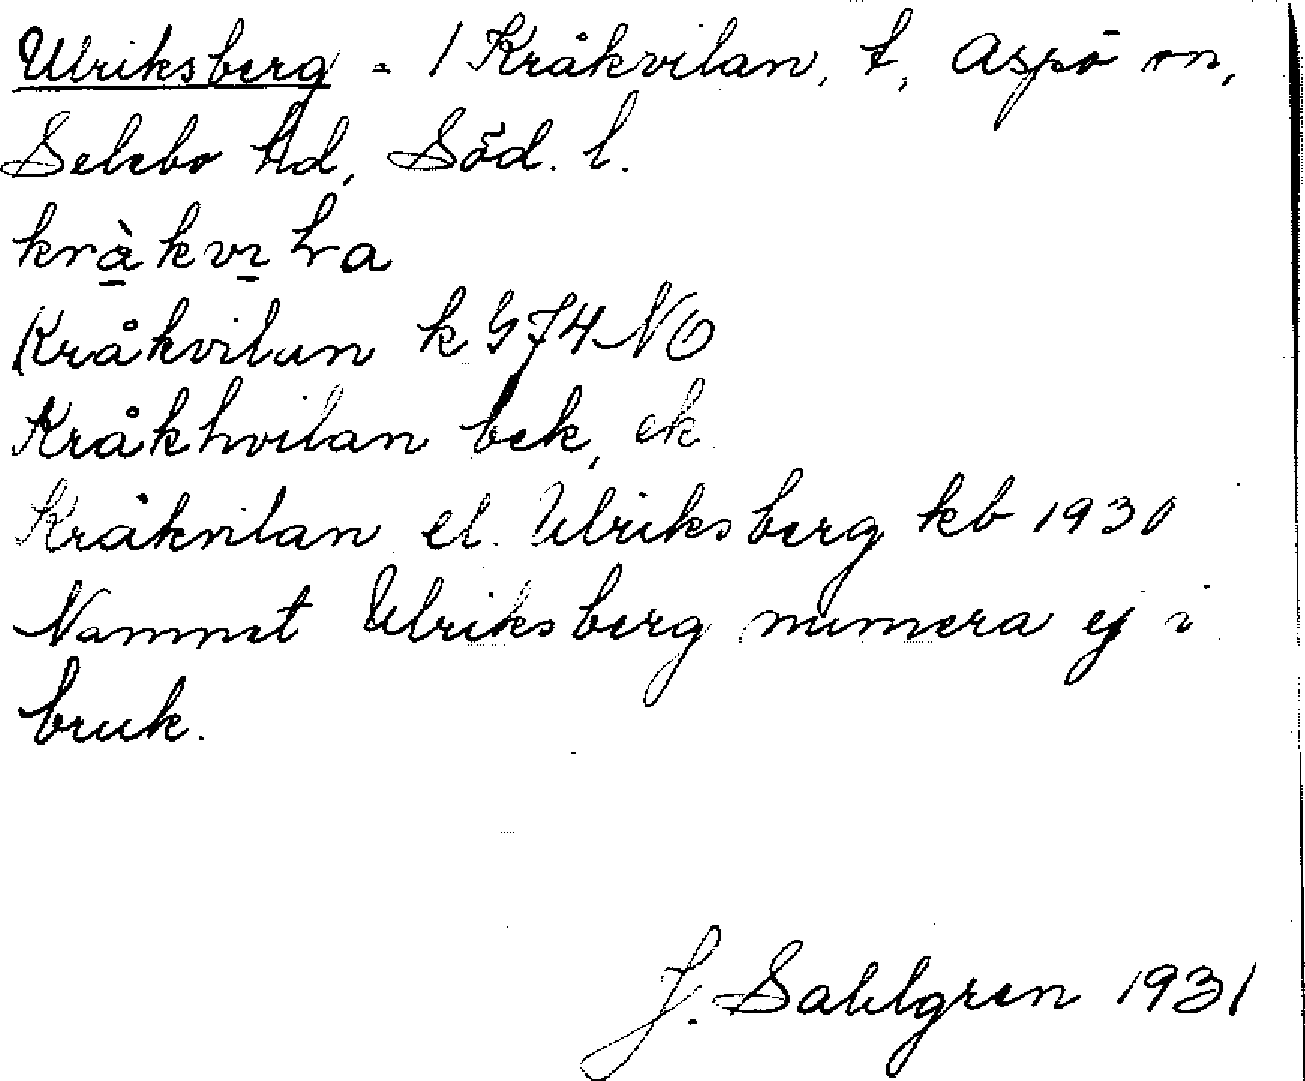 Ulriksberg - 1 Kråkvilan, t, Aspö sn,
Selebo hd, Söd. l.
krà̱kvı̱la
Kråkvilan k G74NO
Kråkhvilan bek, ek
Kråkvilan el. Ulriksberg kb 1930
Namnet Ulriksberg numera ej i
bruk.
J. Sahlgren 1931